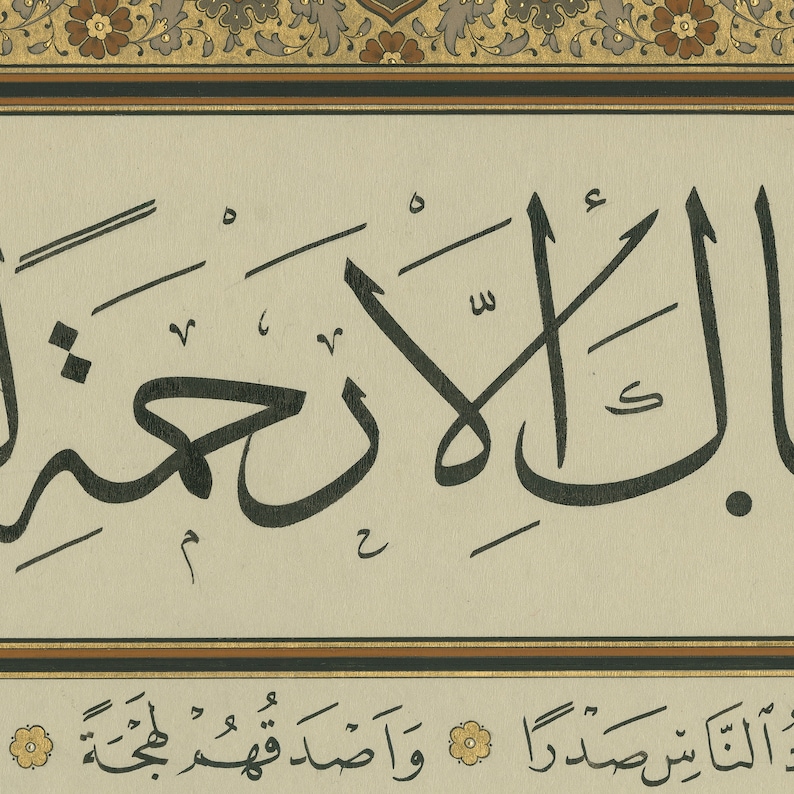 ناك إلا رحمة
النَّاسِ صَدْرًا وَأَصْدَقُهُمْ لَهْجَةً